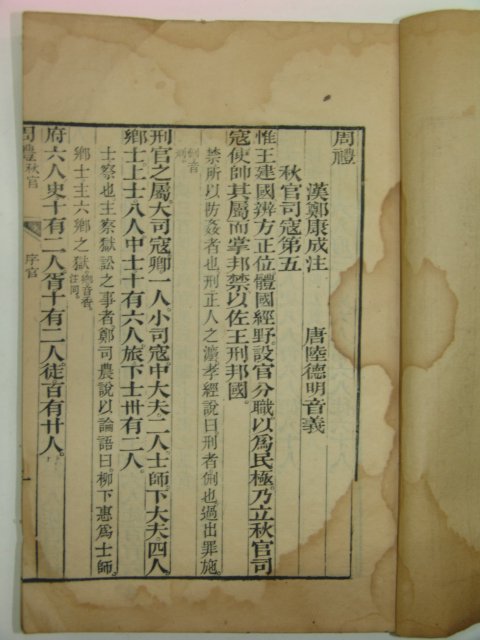 周禮
漢鄭康成注　唐陸德明音義
秋官司寇第五
惟王建國辨方正位體國經野設官分職以爲民極乃立秋官司
寇使帥其屬而掌邦禁以佐王刑邦國。
禁所以防姦者也刑正人之灋孝經說曰刑者侀也過出罪施。
侀音
刑
刑官之屬大司寇卿一人小司寇中大夫二人士師下大夫四人
鄉士上士八人中士十有六人旅下士卅有二人。
士察也主察獄訟之事者鄭司農說以論語曰柳下惠爲士師。
鄉士主六鄉之獄
府六人史十有二人胥十有二人徒百有廿人。
周禮秋官
序官
一